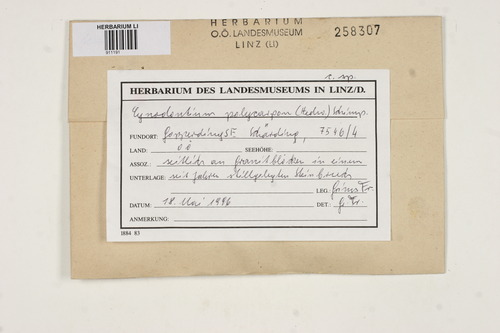 HERBARIUM LI
911191
HERBARIUM
O.Ö. LANDESMUSEUM
LINZ (LI)
258307
c. sp.
HERBARIUM DES LANDESMUSEUMS IN LINZ/D.
Cynodontium polycarpon (Hedw.) Schimp.
FUNDORT: SE Schärding, 7546/4
LAND: OÖ SEEHÖHE:
ASSOZ.: seitlich an Granitblöcken in einem
UNTERLAGE: seit Jahren stillgelegten Steinbruch
LEG. Grims Fr.
DATUM: 18. Mai 1996 DET.: Gr Fr
ANMERKUNG:
1884 83